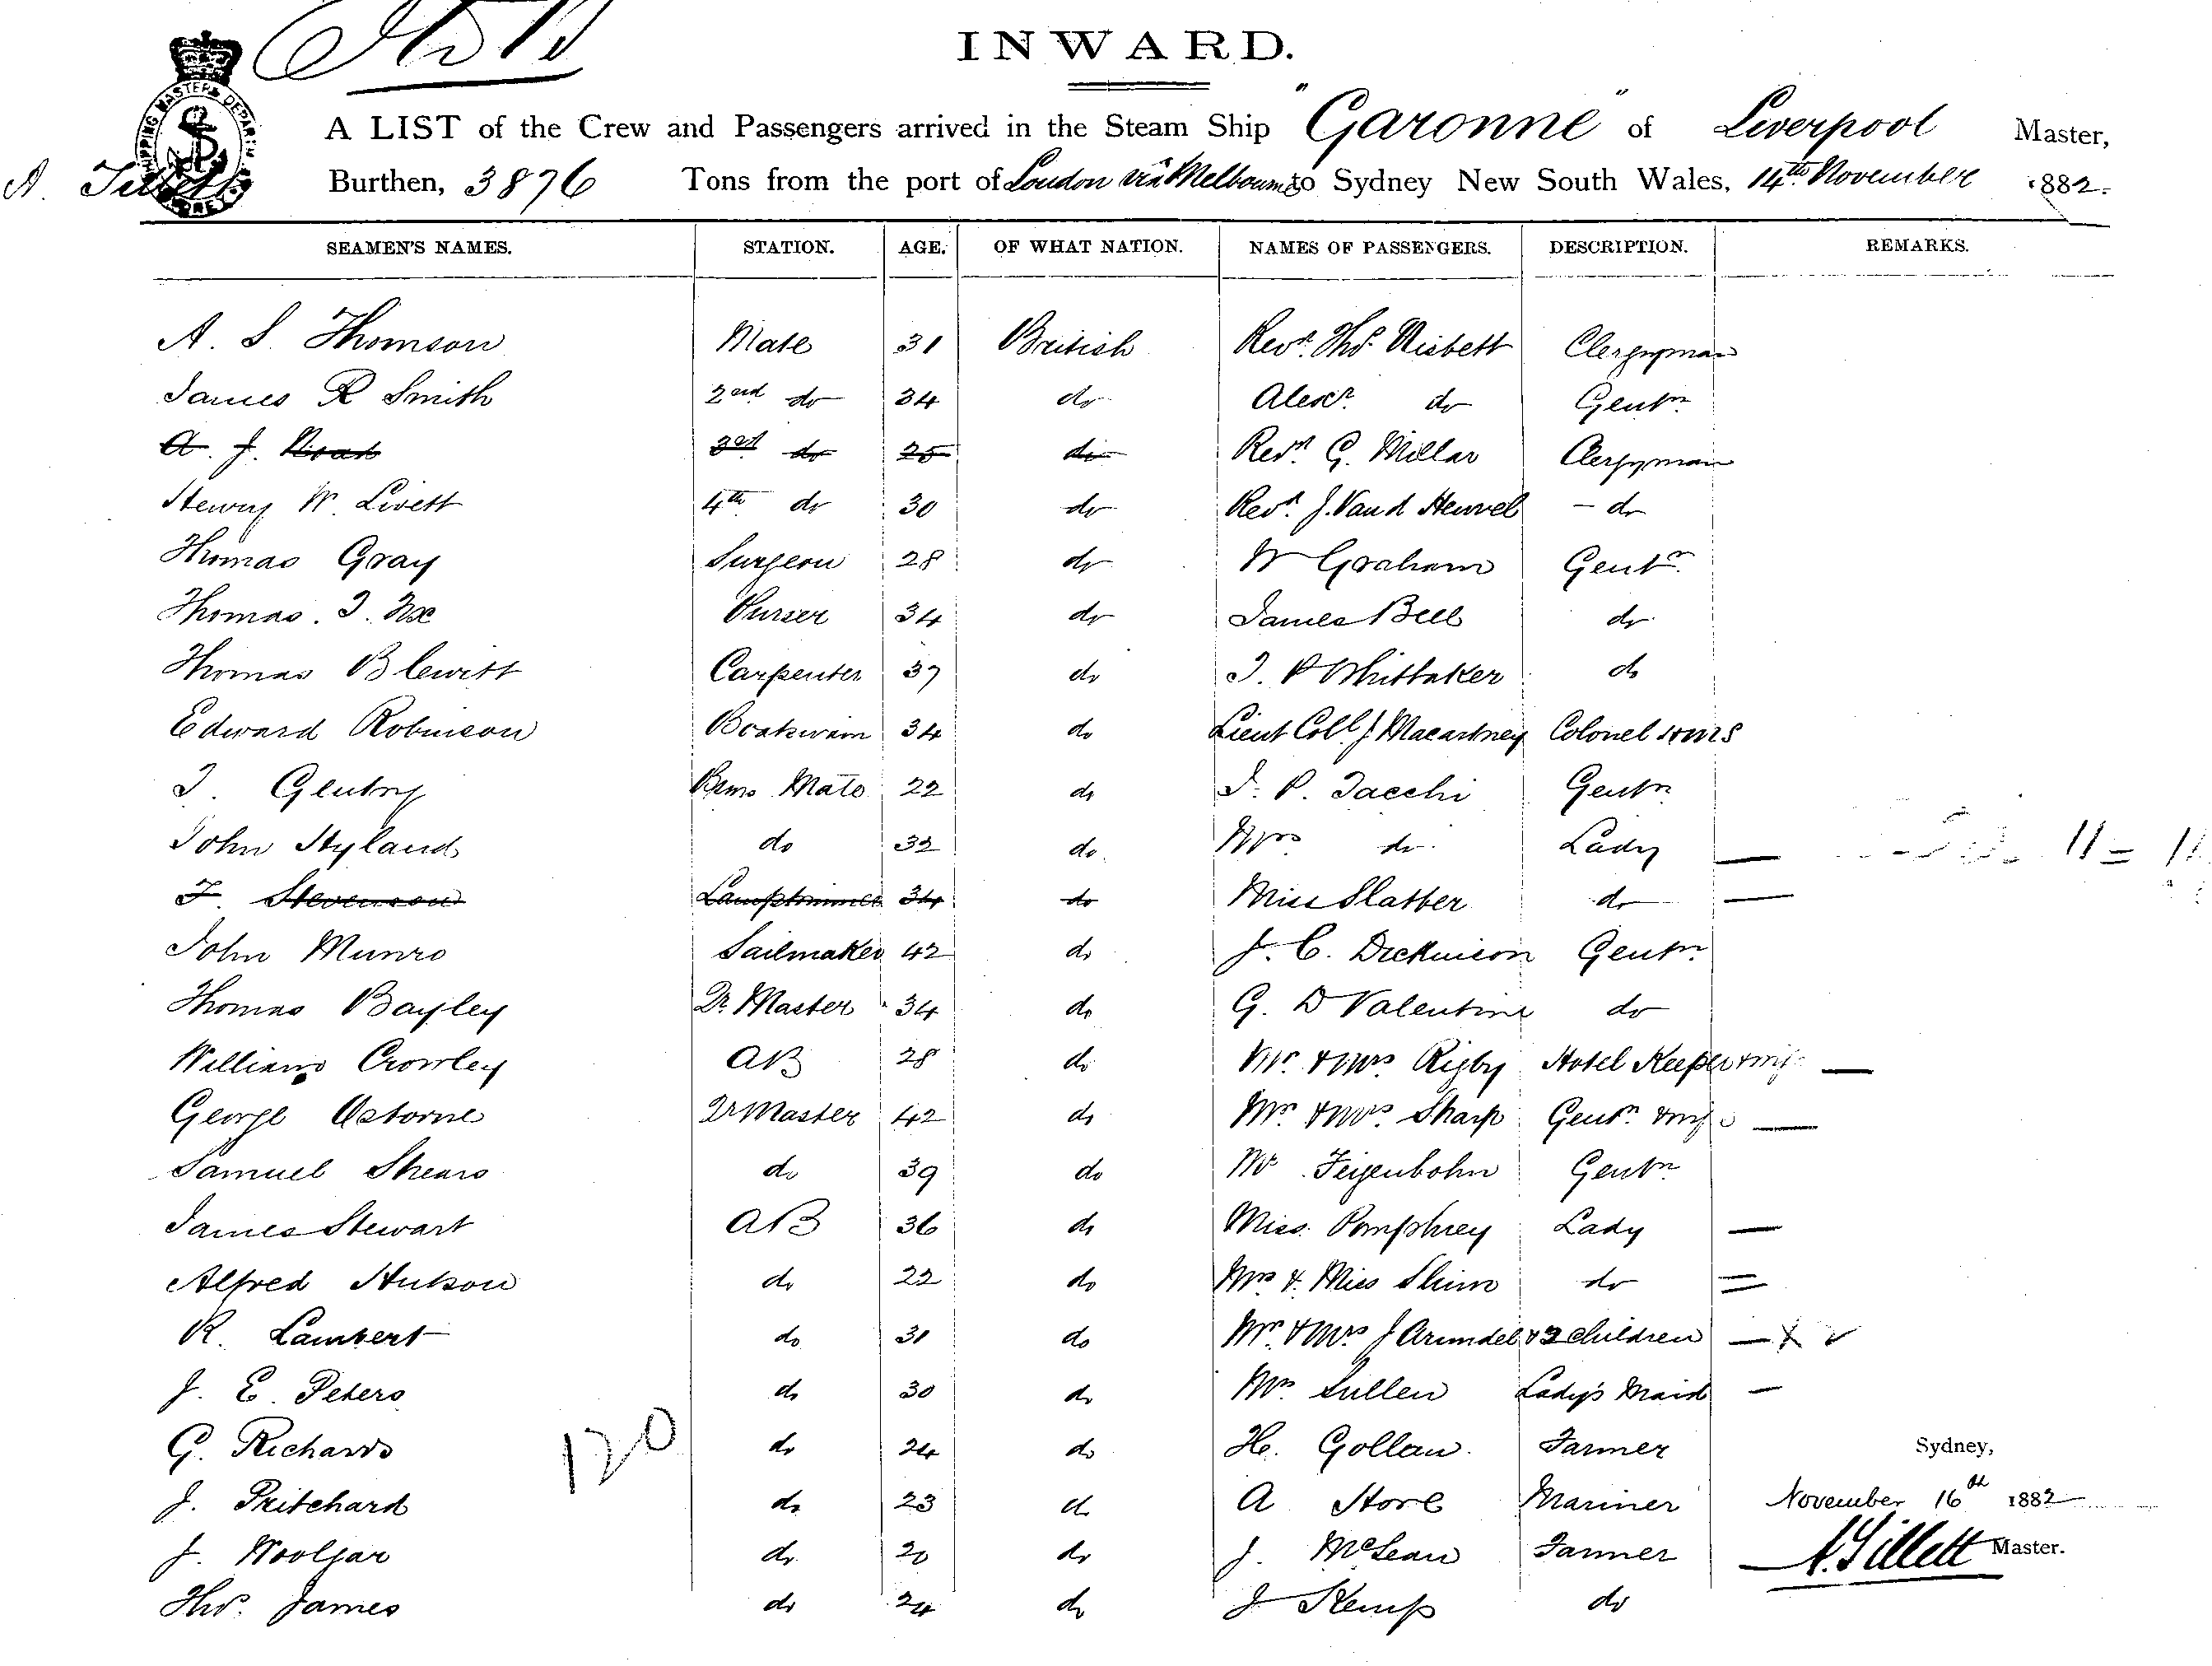 INWARD.
A LIST of the Crew and Passengers arrived in the Steam Ship "Garonne" of Liverpool Master,
A. Tillett Burthen, 3876 Tons from the port of London via Melbourne to Sydney New South Wales, 14th November 1882.
SEAMEN'S NAMES. STATION. AGE. OF WHAT NATION. NAMES OF PASSENGERS. DESCRIPTION. REMARKS.
A. S. Thomson Mate 31 British Revd. Thos. Nisbett Clergyman
James R Smith 2nd do 34 do Alexr. do Gentn
A. J. 3rd do 25 do Revd. G. Millar Clergyman
Henry W. Livett 4th do 30 do Revd. J. Vand Heuvel - do
Thomas Gray Surgeon 28 do W Graham Gentn.
Thomas. J. Purser 34 do James Bell do
Thomas Blewitt Carpenter 37 do J. P Whittaker do
Edward Robinson Boatswain 34 do Lieut Coll. J Macartney Colonel
J. Gentry Mate 22 do J. P. Tacchi Gentn
John Hyland do 32 do Mrs do Lady
J. Stevenson Lamptrimmer 34 do Miss Slatter do
John Munro Sailmaker 42 do J. C. Dickinson Gentn.
Thomas Bayley Qr. Master 34 do G. D Valentine do
William Crowley AB 28 do Mr. & Mrs. Rigby Hotel Keeper & wife
George Osborne Qr Master 42 do Mr. & Mrs. Sharp Gentn. & wife
Samuel Shears do 39 do Mr Feigenbohn Gentn
James Stewart AB 36 do Miss. Pomphrey Lady
Alfred Hutson do 22 do Mrs & Miss do
R. Lambert do 31 do Mr. & Mrs. J Arundel & 2 Children
J. E. Peters do 30 do Sullen Lady's Maid
G. Richards do 24 do H. Gollan. Farmer Sydney,
120
J. Pritchard do 23 do A Hore Mariner November 16th 1882
J. Woolgar do 20 do J. McLean Farmer A. Tillett Master.
Thos. James do 24 do J Kemp do